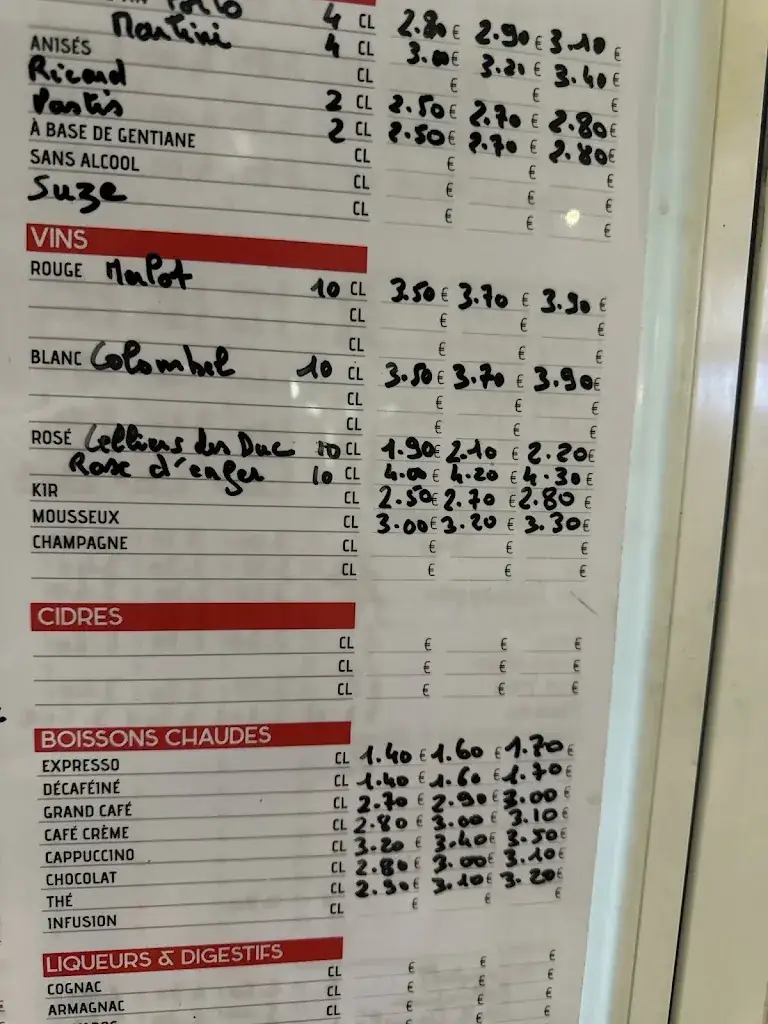 Porto 4 CL 2.80€ 2.90€ 3.10€
Martini 4 CL 3.00€ 3.20€ 3.40€
ANISÉS CL € € €
Ricard 2 CL 2.50€ 2.70€ 2.80€
Pastis 2 CL 2.50€ 2.70€ 2.80€
À BASE DE GENTIANE CL € € €
SANS ALCOOL CL € € €
Suze CL € € €
VINS
ROUGE Merlot 10 CL 3.50€ 3.70€ 3.90€
CL € € €
CL € € €
BLANC Colombel 10 CL 3.50€ 3.70€ 3.90€
CL € € €
CL € € €
ROSÉ Celliers des Duc 10 CL 1.90€ 2.10€ 2.20€
Rose d'enger 10 CL 4.00€ 4.20€ 4.30€
KIR CL 2.50€ 2.70€ 2.80€
MOUSSEUX CL 3.00€ 3.20€ 3.30€
CHAMPAGNE CL € € €
CL € € €
CIDRES
CL € € €
CL € € €
CL € € €
BOISSONS CHAUDES
EXPRESSO CL 1.40€ 1.60€ 1.70€
DÉCAFÉINÉ CL 1.40€ 1.60€ 1.70€
GRAND CAFÉ CL 2.70€ 2.90€ 3.00€
CAFÉ CRÈME CL 2.80€ 3.00€ 3.10€
CAPPUCCINO CL 3.20€ 3.40€ 3.50€
CHOCOLAT CL 2.80€ 3.00€ 3.10€
THÉ CL 2.90€ 3.10€ 3.20€
INFUSION CL € € €
LIQUEURS & DIGESTIFS
COGNAC CL € € €
ARMAGNAC CL € € €